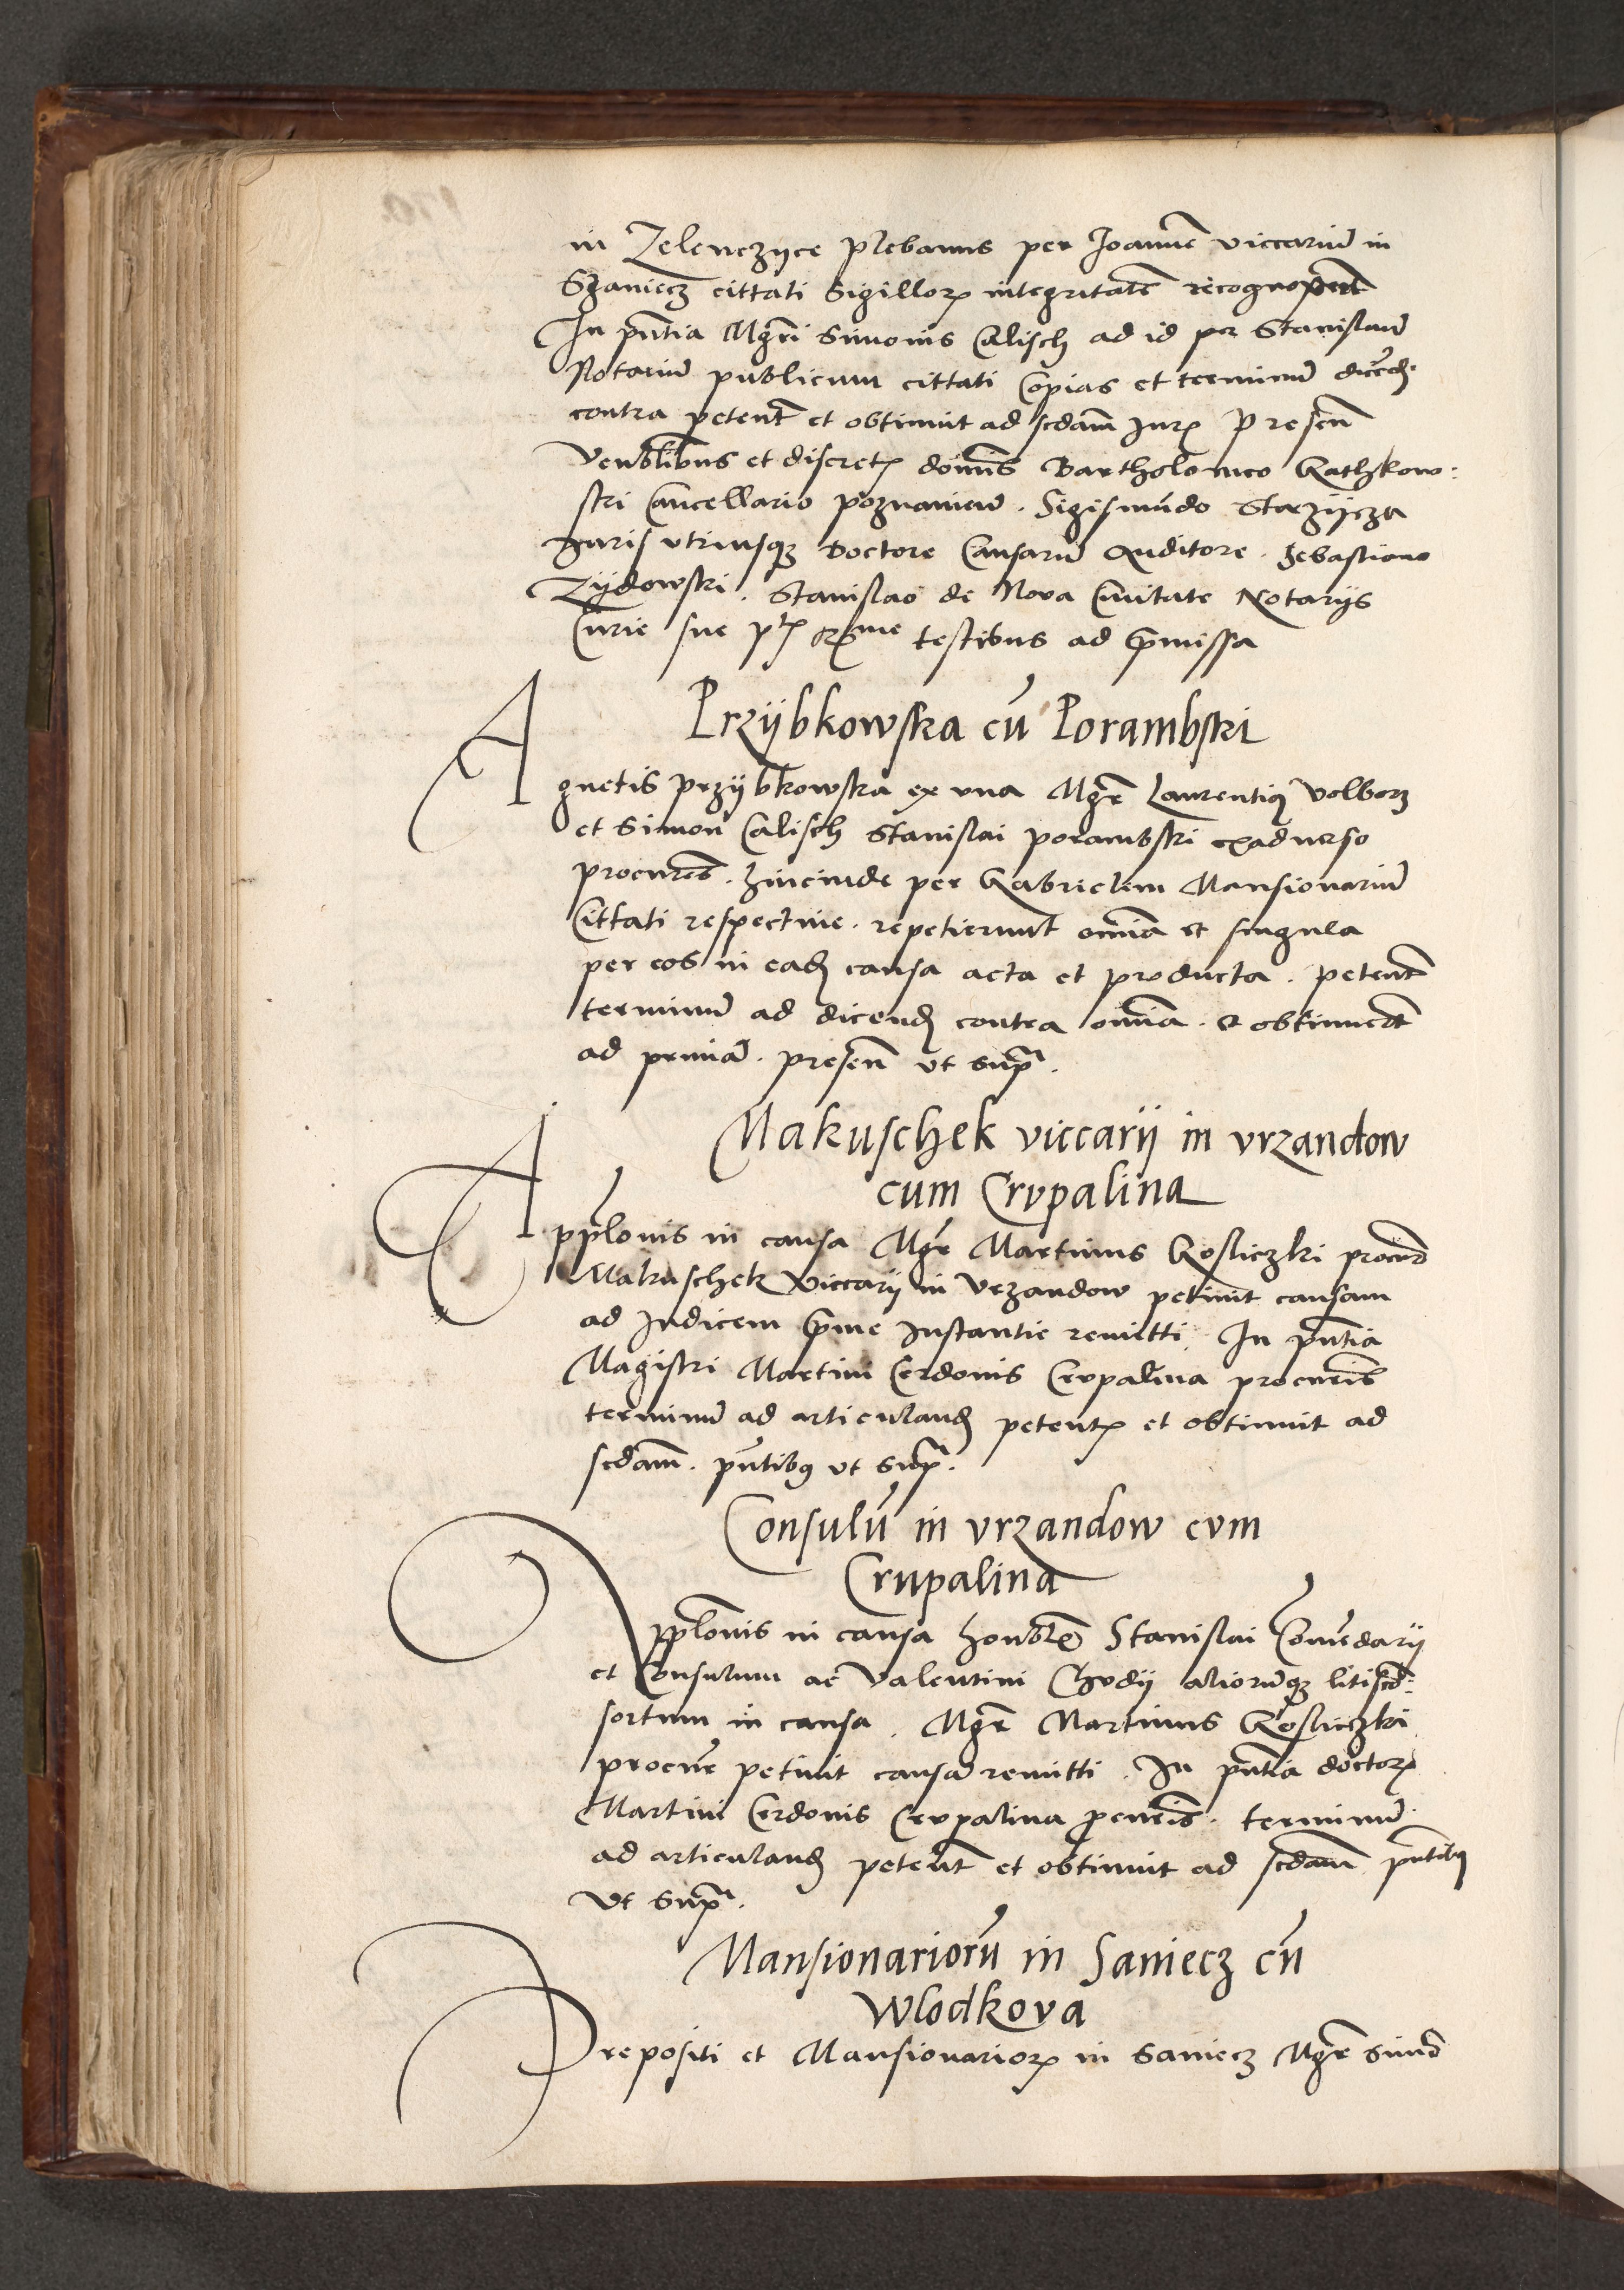 in Zelenczyce plebanus per Joannē viccariū in
Szaniecz cittati Sigilloꝝ integritatē recognoscent̄
In pn̄tia Mgr̄i Simonis Calisch ad id per Stanislaū
Notariū publicum cittati Copias et terminū dicēdi
contra petent̄ et obtinuit ad scdam̄ Juꝝ Presen̄
Venblibus et discretꝝ dominis Bartholomeo Gathkow:
ski Cancellario poznanien̄. Sigismūdo Starzijcza
Juris utriusqꝫ Doctore Causarū Auditore. Sebastiano
Zijdowski. Stanislao de Nova Civitate Notarijs
Curie sue testibus ad p̄missa
Przijbkowska cū Porambski
Agnetis Przijbkowska ex una Mgr̄ Laurentiꝰ Volborz
et Simon Calisch Stanislai porambski exadverso
procures̄. hincinde per Gabrielem Mansionariū
Cittati respective. repetierunt om̄ia et singula
per eos in eadꝫ causa acta et producta. petent̄
terminū ad dicendꝫ contra om̄ia. et obtinuer̄t
ad primā. presen̄ ut supᵃ.
Makuschek viccarij in vrzandow
cum Crvpalina
Appl̄onis in causa Mgr̄ Martinus Gosliczki procur̄
Makuschek Viccarij in Vrzandow petivit causam
ad Judicem p̄me Instantie remitti. In pn̄tia
Magistri Martini Cerdonis Crvpalina procuris̄
terminū ad articulandꝫ petentꝝ et obtinuit ad
scdam̄. pn̄tibꝰ ut supᵃ.
Consulū in vrzandow cvm
Crupalina
Appl̄onis in causa honoblē Stanislai Comēdarij
et Consulum ac Valentini aliorūqꝫ litiscō:
sortum in causa. Mgr̄ Martinus Gosliczki
procur̄ petivit causā remitti. In pn̄tia doctoꝝ
Martini Cerdonis Crvpalina procuris̄. terminū
ad articulandꝫ petent̄ et obtinuit ad scdam̄ pn̄tibꝰ
Ut supᵃ.
Mansionariorū in Saniecz cū
Wlodkova
Prepositi et Mansionarioꝝ in Saniecz Mgr̄ Simō